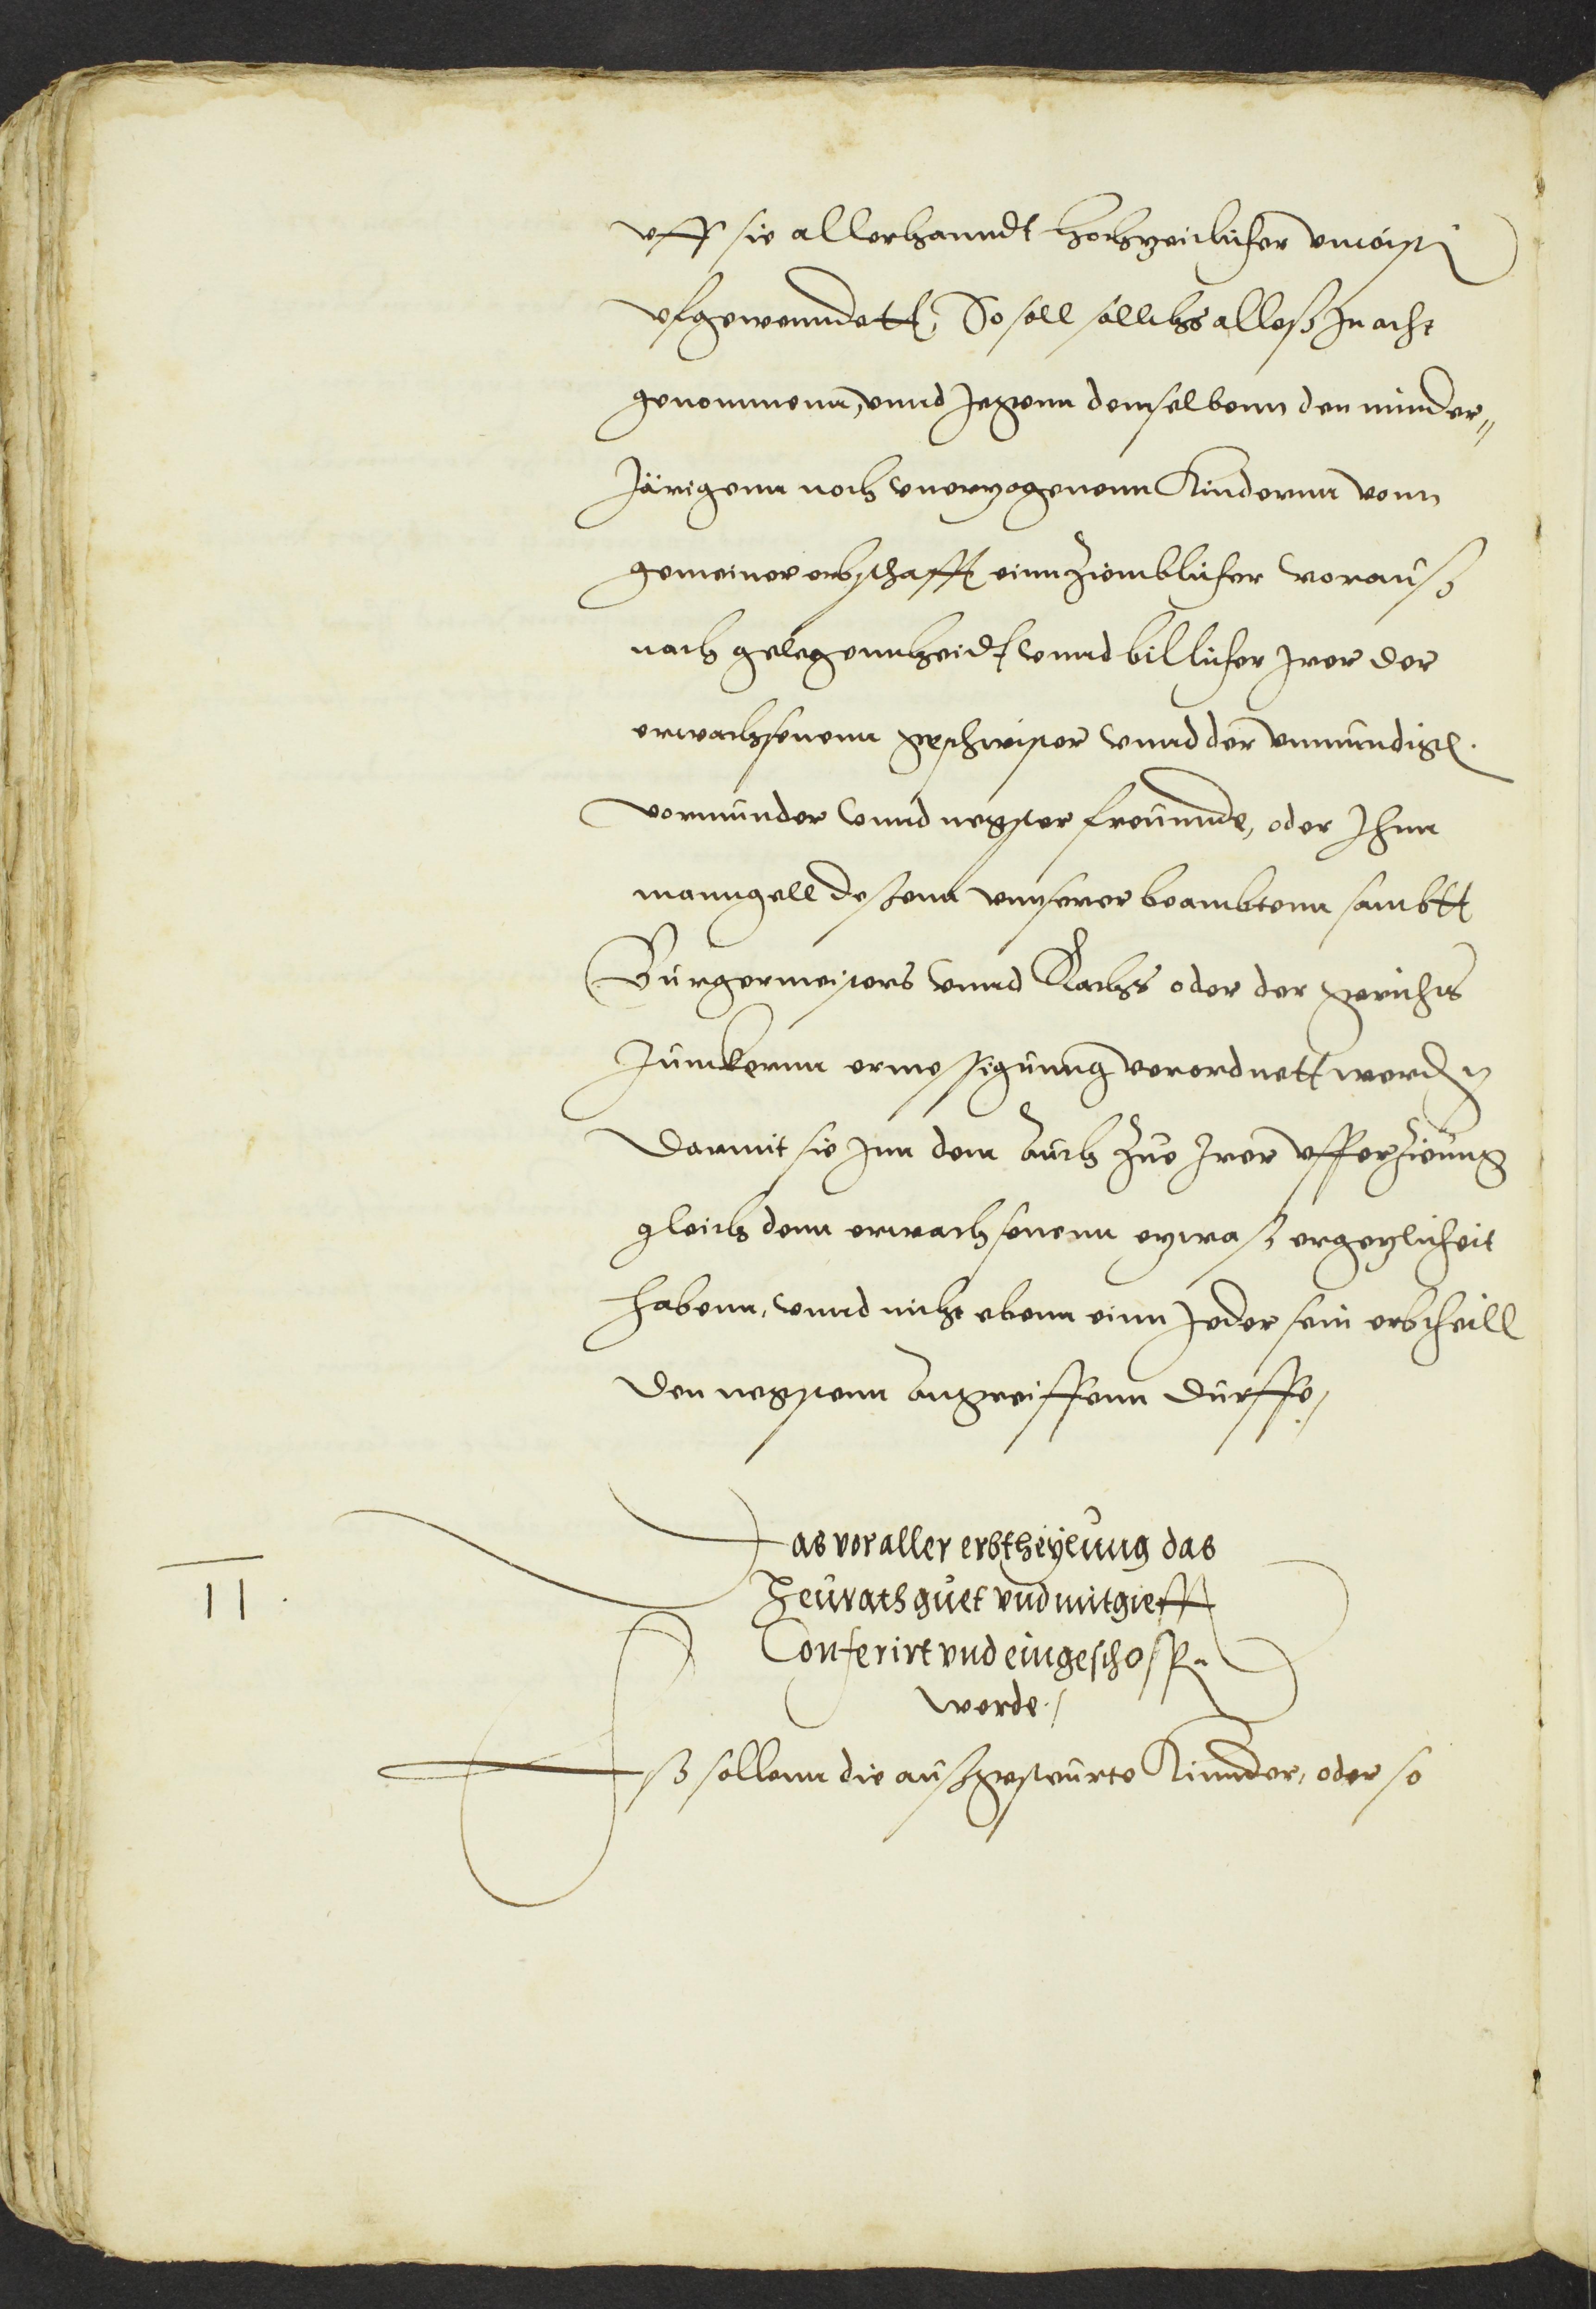 vff sie allerhanndt hochzeitlicher vncost
vfgewenndett, So soll sollichs alleß In acht
genommenn, vnnd Jegenn demselbenn den minder⸗
Järigenn noch vnerzogenenn Kindernn vonn
gemeiner erbschafft einn Ziemblicher vorauß
nach gelegennheidt vnnd billicher Irer der
erwachsenenn geschwister vnnd der vnmündig.
vormünder vnnd negster freünnde, oder Ihnn
manngell deßenn vnnserer beambtenn sambtt
Bürgermeisters vnnd Rachts oder der gerichts
Jünckernn ermessigüng verordnett werden
Darmit sie Inn dem auch Zue Irer vfferZieüng
gleich denn erwachsenenn etwaß ergezlicheit
habenn, vnnd nicht ebenn einn Jeder sein erbtheill
den negstenn angreiffenn dürffe,
II. Das vor aller erbtheÿlüng das
Heürachsgüet vnd mitgiefft
Conferirt vnd eingeschossen
werde./
Eß sollenn die außgesteürte Kinnder, oder so